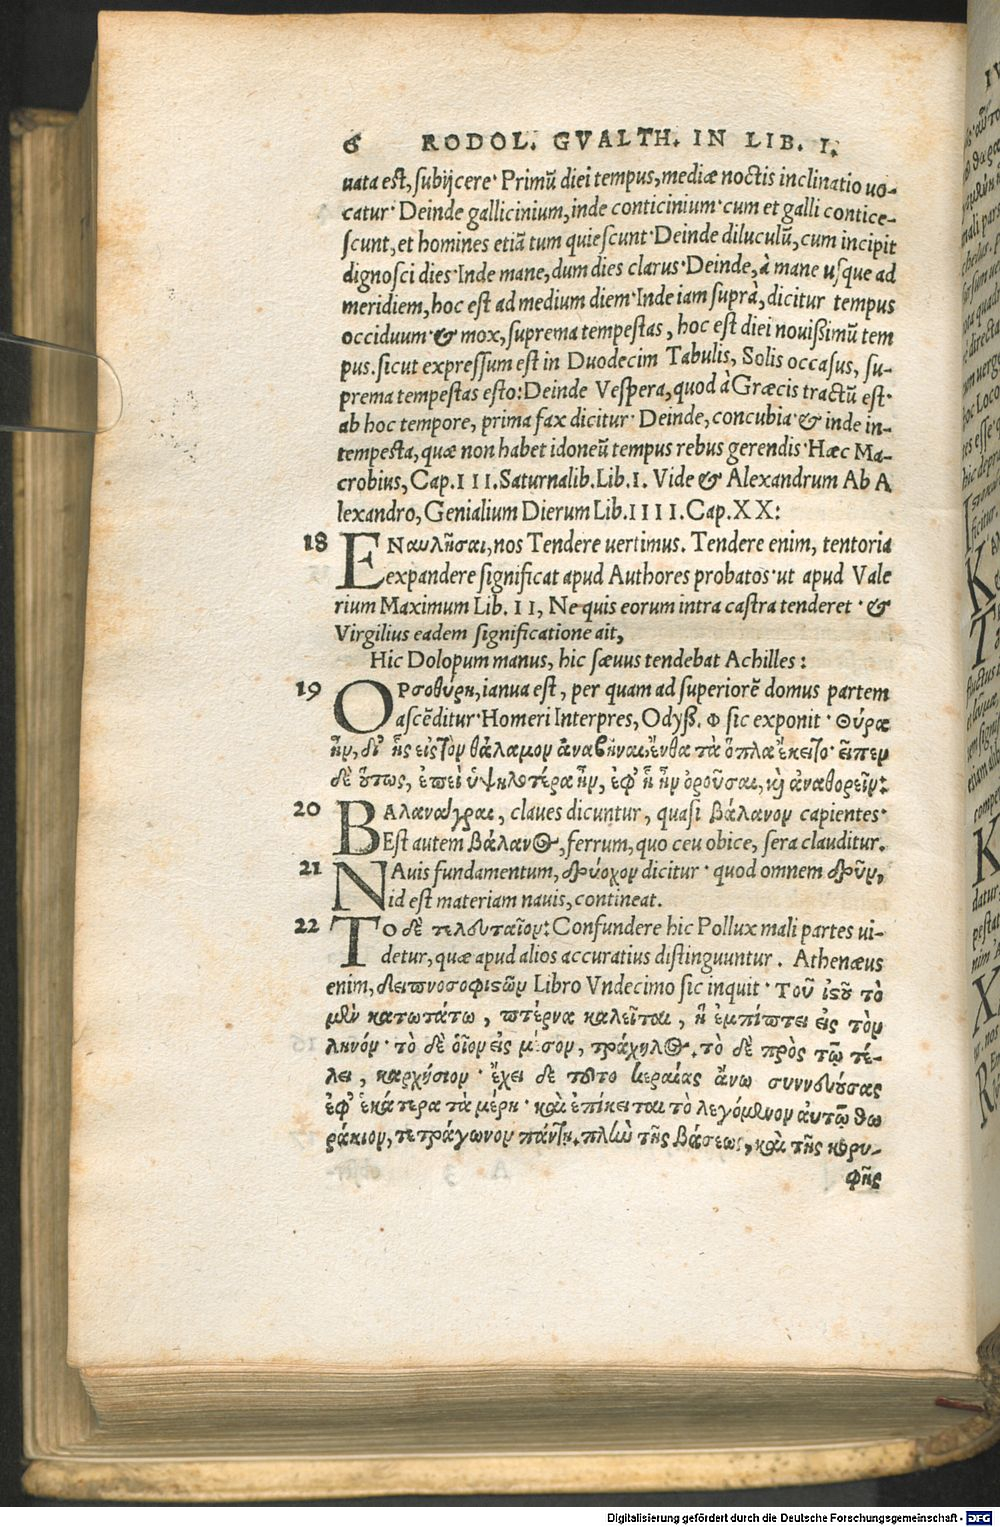 6 RODOL. GVALTH. IN LIB. I.
nata est, subijcere· Primũ diei tempus, mediæ noctis inclinatio uo-
catur· Deinde gallicinium, inde conticinium· cum et galli contice-
scunt, et homines etiã tum quiescunt· Deinde diluculũ, cum incipit
dignosci dies· Inde mane, dum dies clarus· Deinde, à mane usque ad
meridiem, hoc est ad medium diem· Inde iam suprà, dicitur tempus
occiduum· & mox, suprema tempestas, hoc est diei nouißimũ tem
pus. sicut expressum est in Duodecim Tabulis, Solis occasus, su-
prema tempestas esto: Deinde Vespera, quod à Græcis tractũ est·
ab hoc tempore, prima fax dicitur· Deinde, concubia· & inde in-
tempesta, quæ non habet idoneũ tempus rebus gerendis· Hæc Ma-
crobius, Cap. III. Saturnalib. Lib. I. Vide & Alexandrum Ab A
lexandro, Genialium Dierum Lib. IIII. Cap. XX:
18 ENαυλῆσαι, nos Tendere uertimus. Tendere enim, tentoria
expandere significat apud Authores probatos· ut apud Vale
rium Maximum Lib. II, Ne quis eorum intra castra tenderet· &
Virgilius eadem significatione ait,
Hic Dolopum manus, hic sæuus tendebat Achilles:
19 ΟΡσοθύρη, ianua est, per quam ad superiorẽ domus partem
ascẽditur· Homeri Interpres, Odyß. Φ sic exponit· Θύρα
ἦν, δι' ἧς εἰς τὸν θάλαμον ἀναβῆναι, ἔνθα τὰ ὅπλα ἔκειτο· εἴπερ
δὲ ὅτως, ἐπεὶ ὑψηλοτέρα ἦν, ἐφ' ἣ ἦν ὀροῦσαι, κὴ ἀναθορεῖν:
20 ΒΑλανάγραι, claues dicuntur, quasi βάλανον capientes·
Est autem βάλανος, ferrum, quo ceu obice, sera clauditur.
21 NAuis fundamentum, δρύοχον dicitur· quod omnem δρῦν,
id est materiam nauis, contineat.
22 ΤΟ δὲ τελευταῖον: Confundere hic Pollux mali partes ui-
detur, quæ apud alios accuratius distinguuntur. Athenæus
enim, δειπνοσοφιστῶν Libro Vndecimo sic inquit· Τοῦ ἱστοῦ τὸ
μὲν κατωτάτω, πτέρνα καλεῖται, ἣ ἐμπίπτει εἰς τὸν
ληνόν· τὸ δὲ οἷον εἰς μέσον, τράχηλος. τὸ δὲ πρὸς τῷ τέ-
λει, καρχήσιον· ἔχει δὲ τοῦτο κεραίας ἄνω συννευούσας
ἐφ' ἑκάτερα τὰ μέρη· καὶ ἐπίκειται τὸ λεγόμενον αὐτῷ θω
ράκιον, τετράγωνον πάντη. πλὴν τῆς βάσεως, καὶ τῆς κορυ-
φῆς
Digitalisierung gefördert durch die Deutsche Forschungsgemeinschaft - DFG